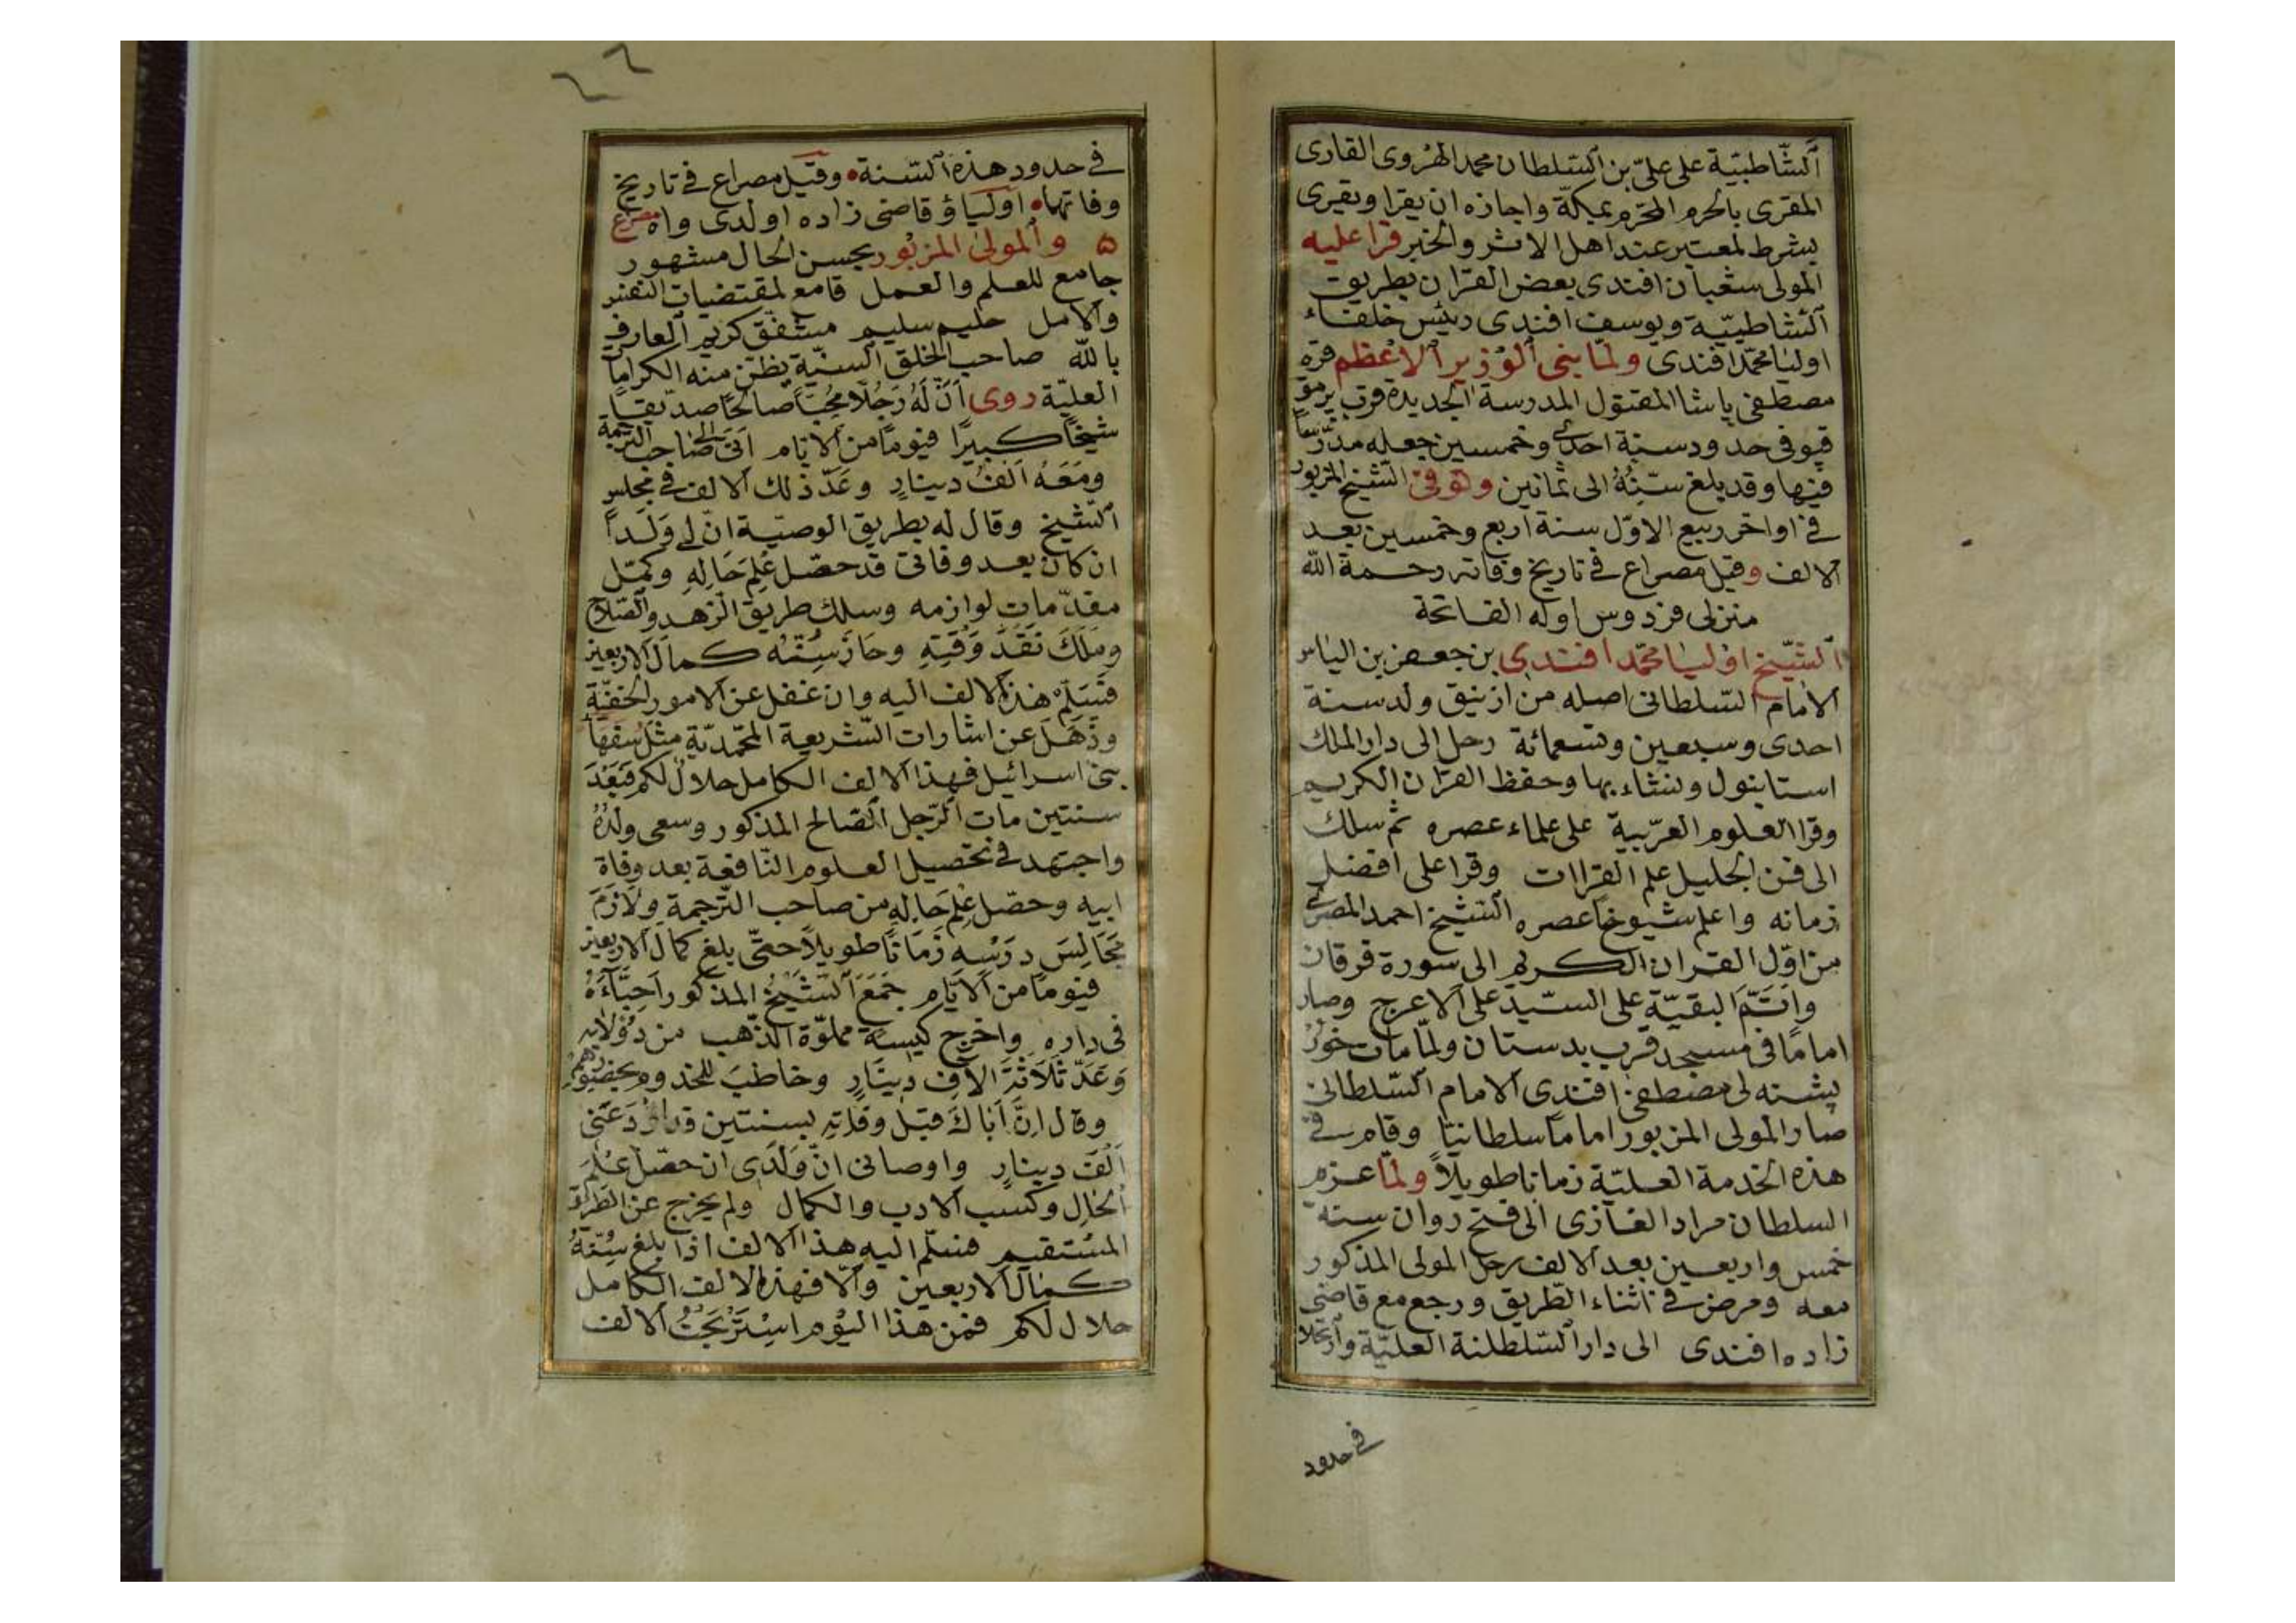 الشّاطبيّة على علىّ بن السّلطان محمد الهروى القارى
المقرى بالحرم المحترم بمكة واجازه ان يقرا ويقرى
بشرط لمعتبر عند اهل الاثر والخبر قرا عليه
المولى شعبان افندى بعض القرآن بطريق
الشّاطبيّة ويوسف افندى رئيس خلفاء
اوليا محمّد افندى ولمّا بنى الوزير الاعظم قره
مصطفى پاشا المقتول المدرسة الجديدة قرب پرمق
قپو فى حدود سنة احدى وخمسين جعله مدرّساً
فيها وقد بلغ سنّه الى ثمانين وتوفى الشّيخ المزبور
فى اواخر ربيع الاوّل سنة اربع وخمسين بعد
الالف وقيل مصراع فى تاريخ وفاته رحمة الله
منزلى فردوس اوله الفاتحة
الشّيخ اوليا محمّد افندى بن جعفر بن الياس
الامام السّلطانى اصله من ازنيق ولد سنة
احدى وسبعين وتسعمائة رحل الى دار الملك
استانبول ونشاء بها وحفظ القرآن الكريم
وقرا العلوم العربيّة على علماء عصره ثم سلك
الى فن الجليل علم القراات وقرا على افضل
زمانه واعلم شيوخ عصره الشّيخ احمد المصرى
من اوّل القران الكريم الى سورة فرقان
واتمّ البقيّة على السّيّد على الاعرج وصار
اماما فى مسجد قرب بدستان ولمّا مات خورد
پشته لى مصطفى افندى الامام السّلطانى
صار المولى المزبور اماماً سلطانيّاً وقام فى
هذه الخدمة العليّة زمانا طويلاً ولمّا عزم
السلطان مراد الغازى الى فتح روان سنة
خمس واربعين بعد الالف رحل المولى المذكور
معه ومرض فى اثناء الطّريق ورجع مع قاضى
زاده افندى الى دار السّلطنة العليّة وارتحلا
فى حدود
٦٦
فى حدود هذه السّنة وقيل مصراع فى تاريخ
وفاتهما اوليا ؤ قاضى زاده اولدى واه مصرع
٥ والمولى المزبور بحسن الحال مشهور
جامع للعلم والعمل قامع لمقتضيات النفس
والامل حليم سليم مشفق كريم العارف
بالله صاحب الخلق السنيّة يظنّ منه الكراما
العليّة روى انّ له رجلاً محبّاً صالحاً صدّيقاً
شيخاً كبيرًا فيوماً من الايّام اتى الى صاحب الترجمة
ومعه الف دينار وعدّ ذلك الالف فى مجلس
الشّيخ وقال له بطريق الوصيّة انّ لى ولداً
ان كان بعد وفاتى قد حصّل علم حاله وكمّل
مقدّمات لوازمه وسلك طريق الزهد والصّلاح
وملك نقد وقته وحاز سنّه كمال الاربعين
فسلّم هذه الالف اليه وان غفل عن الامور الخفيّة
وذهل عن اشارات الشّريعة المحمّديّة مثل سفها
بنى اسرائيل فهذا الالف الكامل حلال لكم فبعد
سنتين مات الرّجل الصّالح المذكور وسعى ولده
واجتهد فى تحصيل العلوم النّافعة بعد وفاة
ابيه وحصّل علم حاله من صاحب التّرجمة ولازم
مجالس درسه زماناً طويلاً حتّى بلغ كمال الاربعين
فيوماً من الايّام جمع الشّيخ المذكور احبّاءه
فى داره واخرج كيسة مملوّة الذّهب من دولابه
وعدّ ثلاثة الاف دينار وخاطب للمخدوم بحضورهم
وقال انّ اباك قبل وفاته بسنتين قد اودعنى
الف دينار واوصانى انّ ولدى ان حصّل علم
الحال وكسب الادب والكمال ولم يخرج عن الطّريق
المستقيم فسلّم اليه هذا الالف اذا بلغ سنّه
كمال الاربعين والّا فهذا الالف الكامل
حلال لكم فمن هذا اليوم استربحت الالف